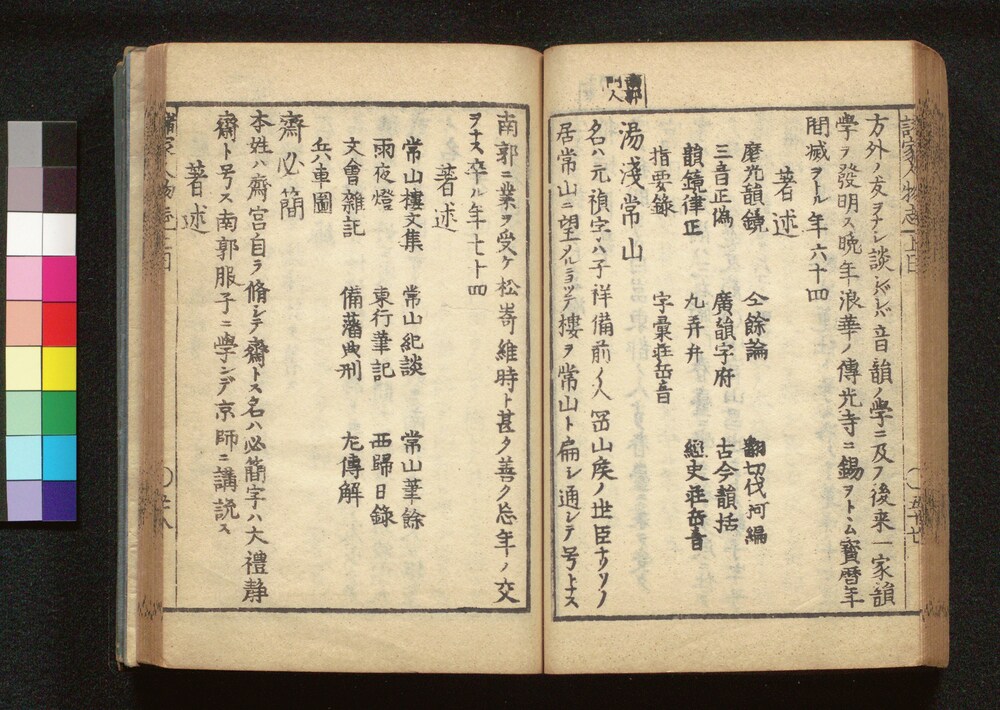 諸家人物志上曰 〇五十七
方外ノ友ヲナシ談シバ〳〵音韻ノ學ニ及フ後来一家韻
學ヲ發明ス晩年浪華ノ傳光寺ニ錫ヲトヽム寶暦年
間滅ヲトル年六十四
著述
磨光韻鏡 仝餘論 翻切伐柯編
三音正偽 廣韻字府 古今韻括
韻鏡律正 九弄弁 經史荘岳音
指要錄 字彙荘岳音
南郭門人
湯淺常山
名ハ元禎字ハ子祥備前ノ人岡山矦ノ世臣ナリソノ
居常山ニ望メルニヨツテ樓ヲ常山ト扁シ通シテ号トス
南郭ニ業ヲ受ケ松﨑維時ト甚タ善ク忘年ノ交
ヲナス卒ル年七十四
著述
常山樓文集 常山紀談 常山筆餘
雨夜燈 東行筆記 西歸日錄
文會雜記 備藩典刑 左傳解
兵車圖
齋必簡
本姓ハ齋宮自ラ脩シテ齋トス名ハ必簡字ハ大禮静
齋ト号ス南郭服子ニ學ンデ京師ニ講説ス
著述
諸家人物志上曰 〇五十八